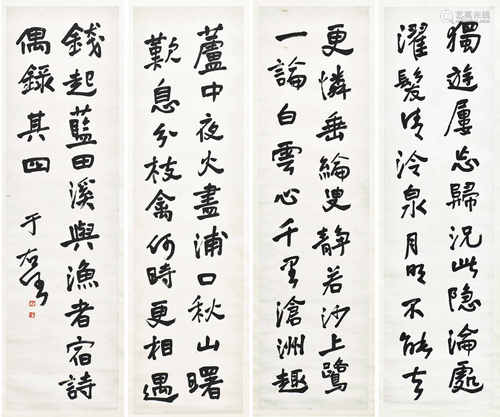 獨遊屢忘歸況此隱淪處
濯髮清泠泉月明不能去
更憐垂綸叟靜若沙上鷺
一論白雲心千里滄洲趣
蘆中夜火盡浦口秋山曙
歎息分枝禽何時更相遇
錢起藍田溪與漁者宿詩
偶錄其四
于右任